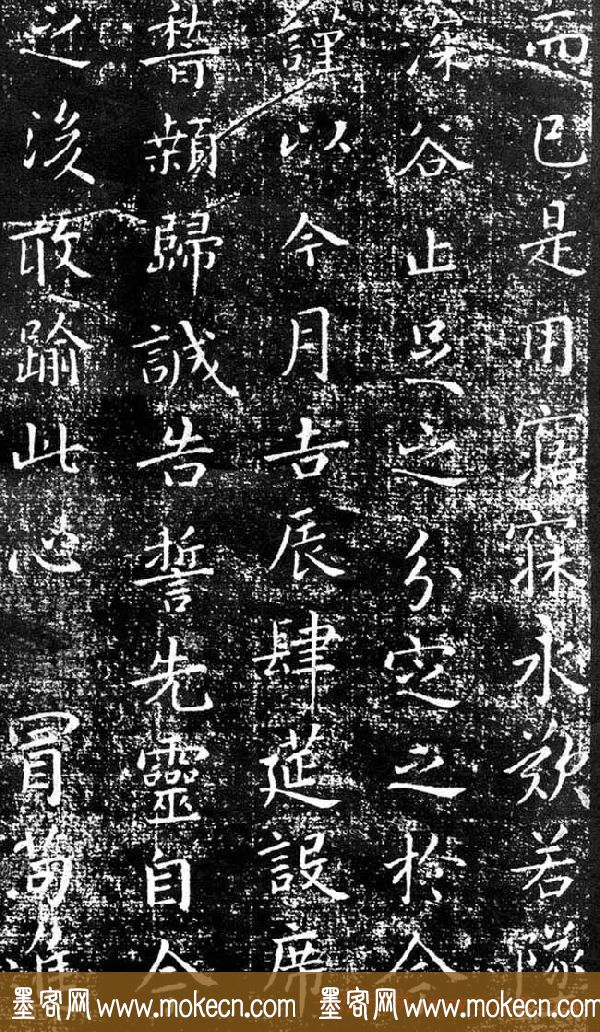 而已是用寤寐永歎若墜
深谷止足之分定之於今
謹以今月吉辰肆筵設席
稽顙歸誠告誓先靈自今
之後敢踰此心 冒苟進
墨客网 www.mokecn.com 墨客网 www.mokecn.com